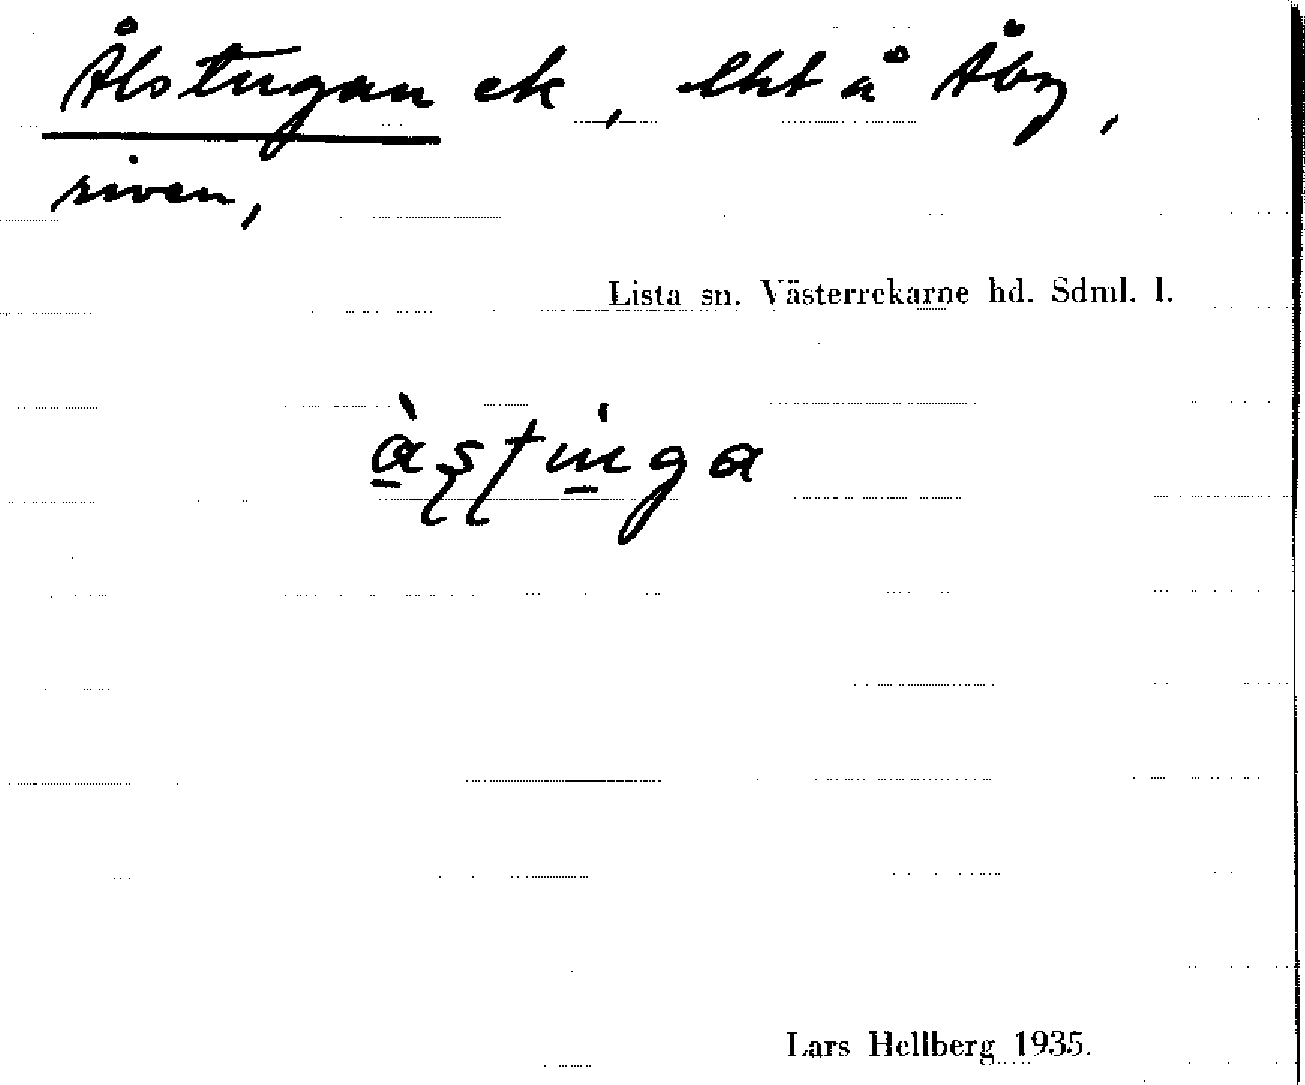 Ålstugan ek, lht å Åby,
riven,
Lista sn. Västerrekarne hd. Sdml. l.
Lars Hellberg 1935.